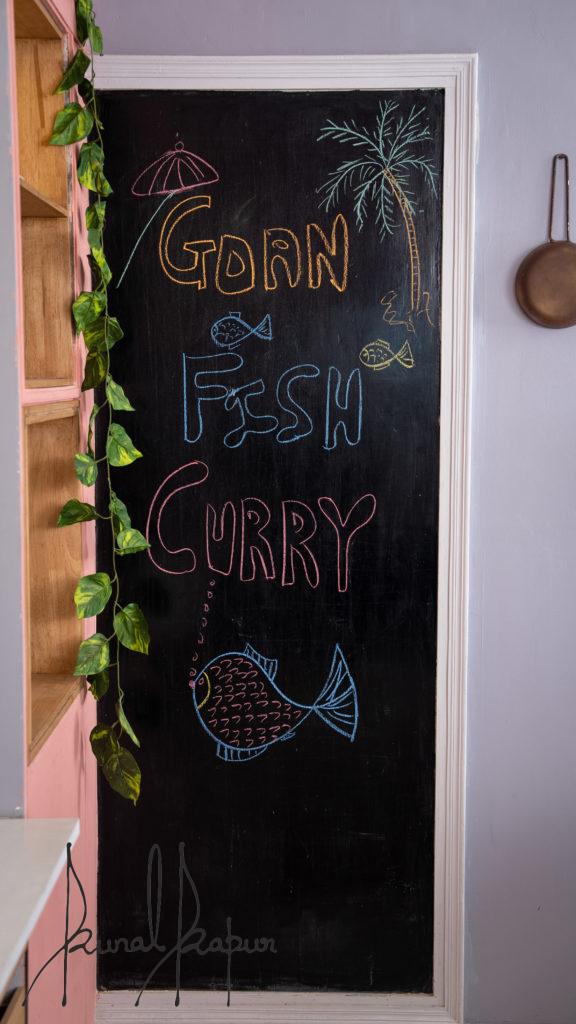 GOAN
FISH
CURRY
Kunal Kapur